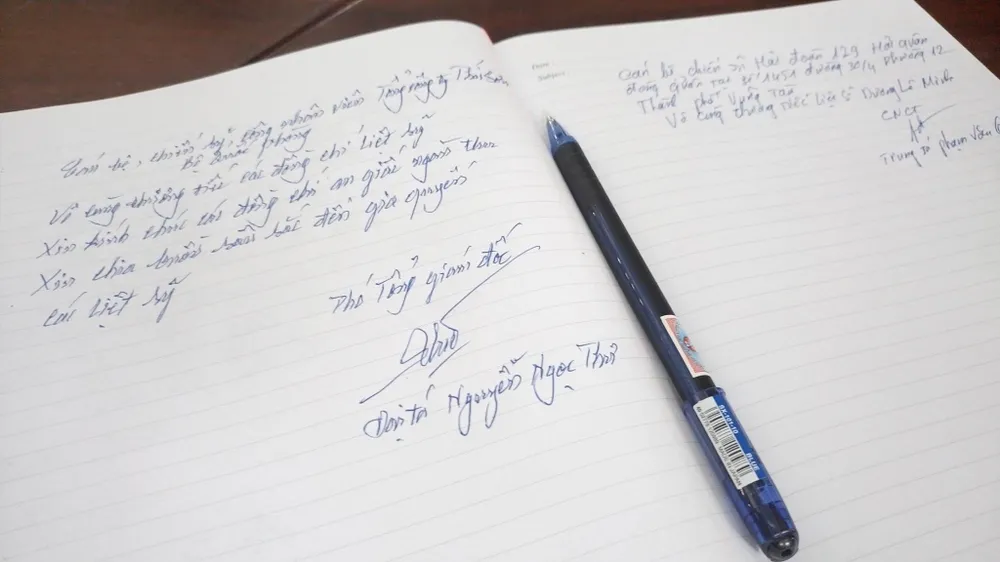 Cán bộ, chiến sỹ, công nhân viên Tổng công ty Thái Sơn
Bộ Quốc phòng
Vô cùng thương tiếc các đồng chí liệt sỹ
Xin kính chúc các đồng chí an giấc ngàn thu
Xin chia buồn sâu sắc đến gia quyến
các liệt sỹ
Phó Tổng giám đốc
Đại tá Nguyễn Ngọc
Cán bộ chiến sĩ Hải đoàn 129 Hải quân
đóng quân tại số 1451 đường 30/4 phường 12
Thành phố Vũng Tàu
Vô cùng thương tiếc liệt sĩ Dương Lê Minh
CNCT
Trung tá Phạm Văn
BX-101-10
BLUE